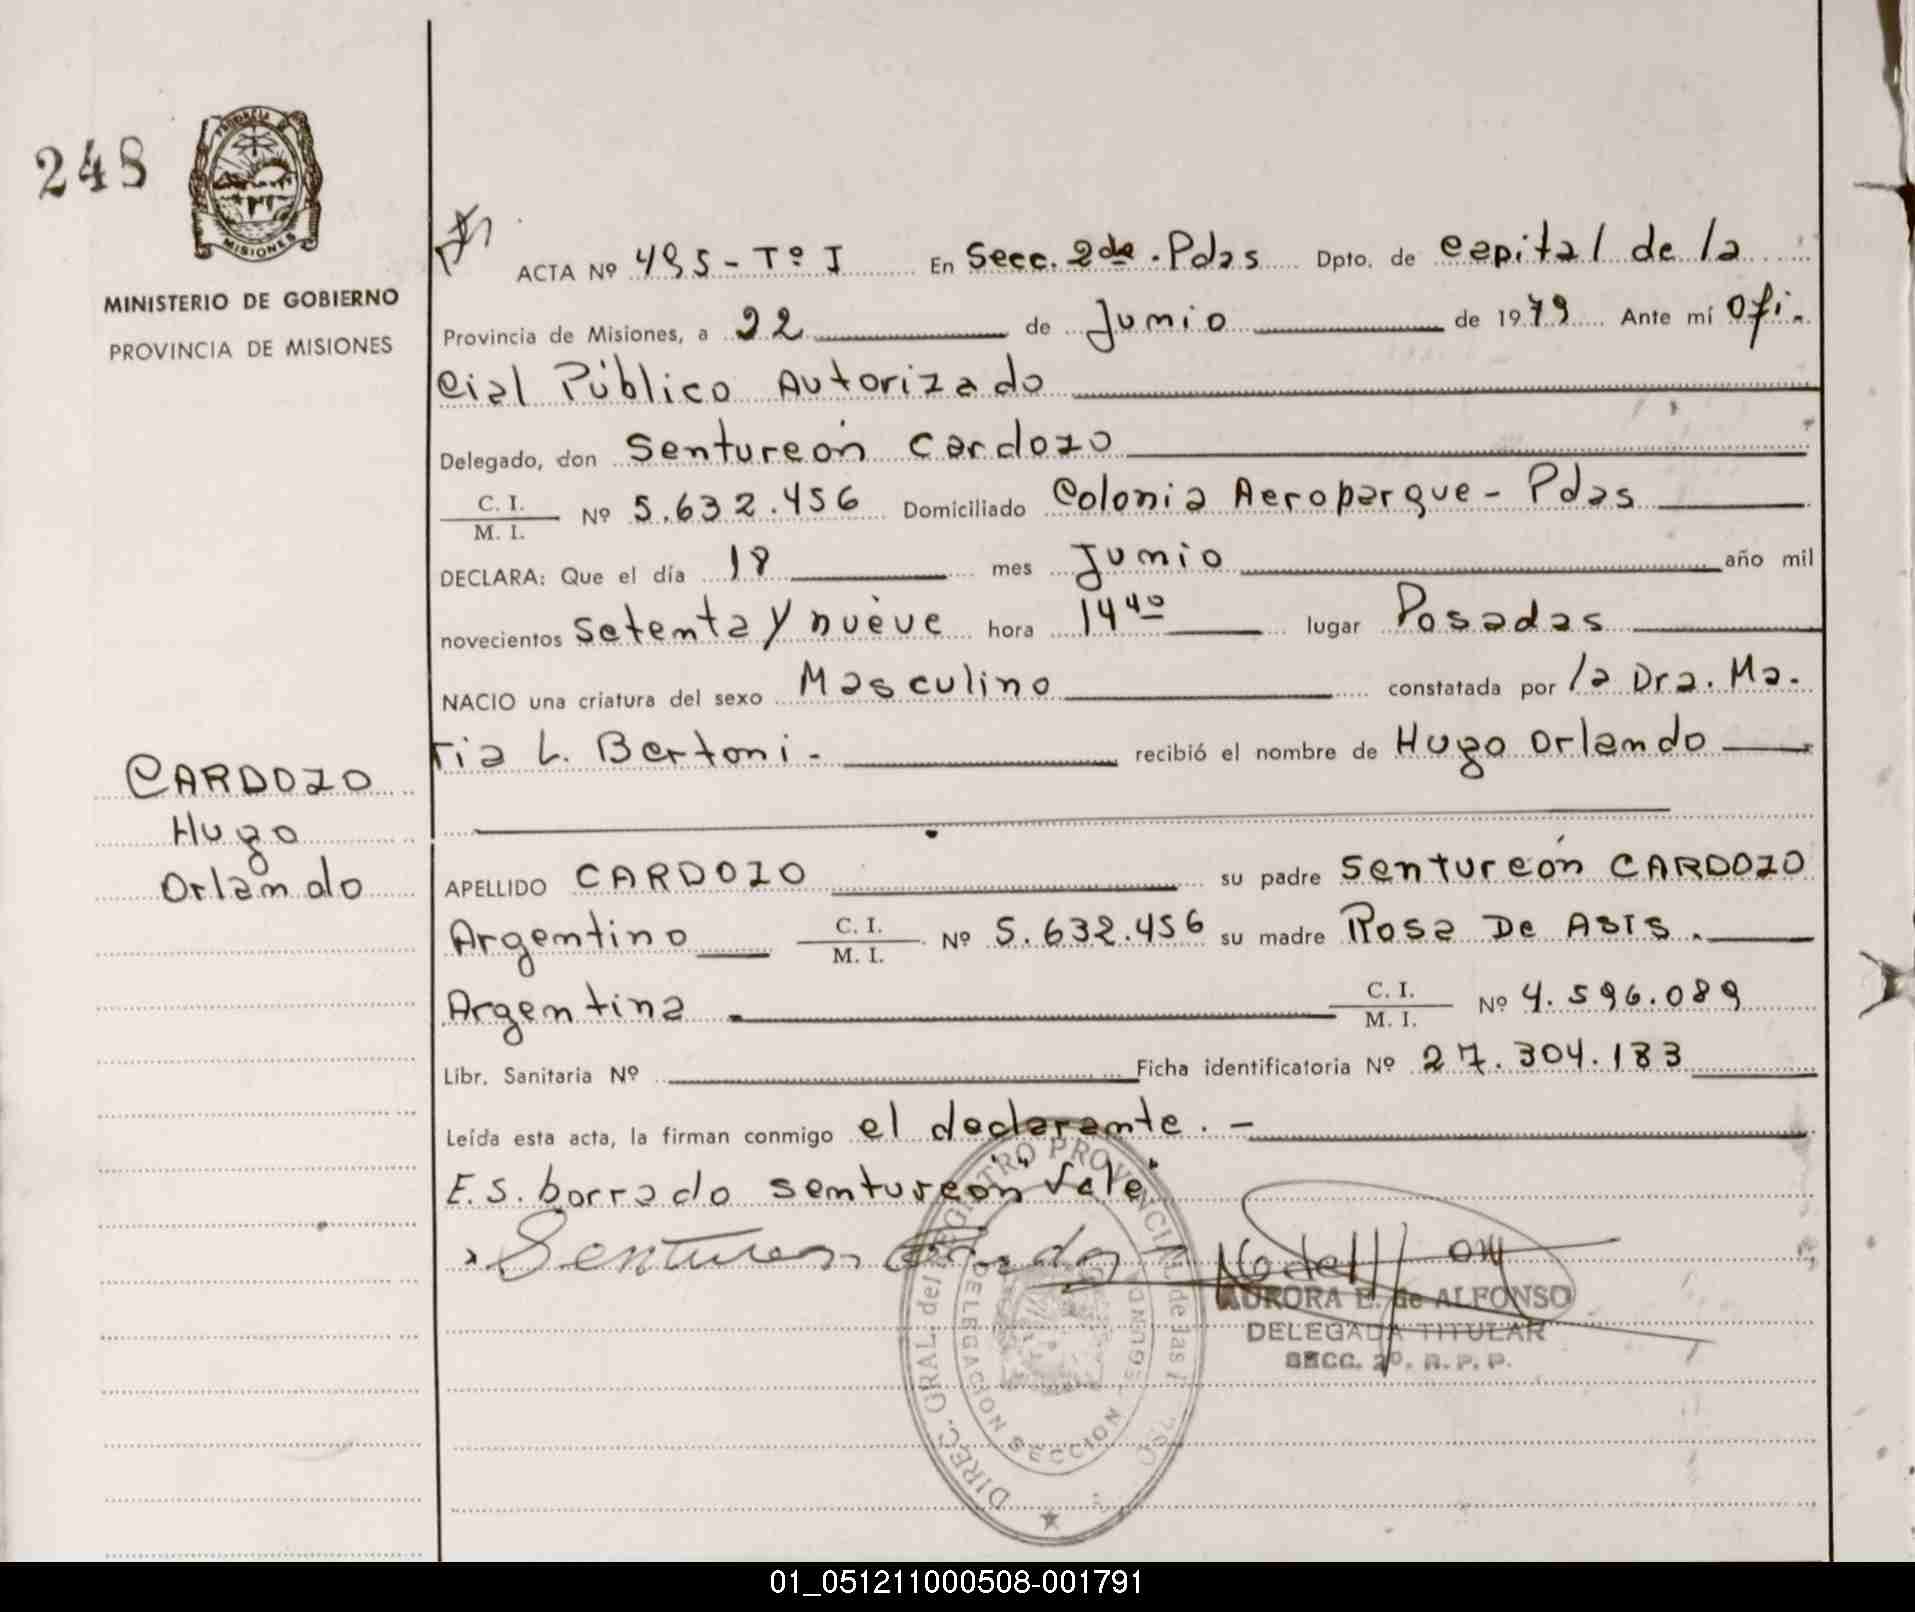 248
PROVINCIA DE
MISIONES
MINISTERIO DE GOBIERNO
PROVINCIA DE MISIONES
ACTA Nº 495 - Tº I En Secc. 2da. Pdas Dpto. de Capital de la
Provincia de Misiones, a 22 de Junio de 1979 Ante mí Ofi-
cial Público Autorizado
Delegado, don Sentureón Cardozo
C. I. / M. I. Nº 5.632.456 Domiciliado Colonia Aeroparque - Pdas
DECLARA: Que el día 18 mes Junio año mil
novecientos setenta y nueve hora 14 40 lugar Posadas
NACIO una criatura del sexo Masculino constatada por la Dra. Ma-
ria L. Bertoni - recibió el nombre de Hugo Orlando
CARDOZO
Hugo
Orlando
APELLIDO CARDOZO su padre Sentureón CARDOZO
Argentino C. I. / M. I. Nº 5.632.456 su madre Rosa De ASIS.
Argentina C. I. / M. I. Nº 4.596.089
Libr. Sanitaria Nº Ficha identificatoria Nº 27.304.183
Leída esta acta, la firman conmigo el declarante. -
E.S. borrado sentureón "Vale"
Sentureon Cardozo
AURORA E. de ALFONSO
DELEGADA TITULAR
SECC. 2º. R. P. P.
DIREC. GRAL. del REGISTRO PROVINCIAL de las
DELEGACION SECCION SEGUNDA
01_051211000508-001791